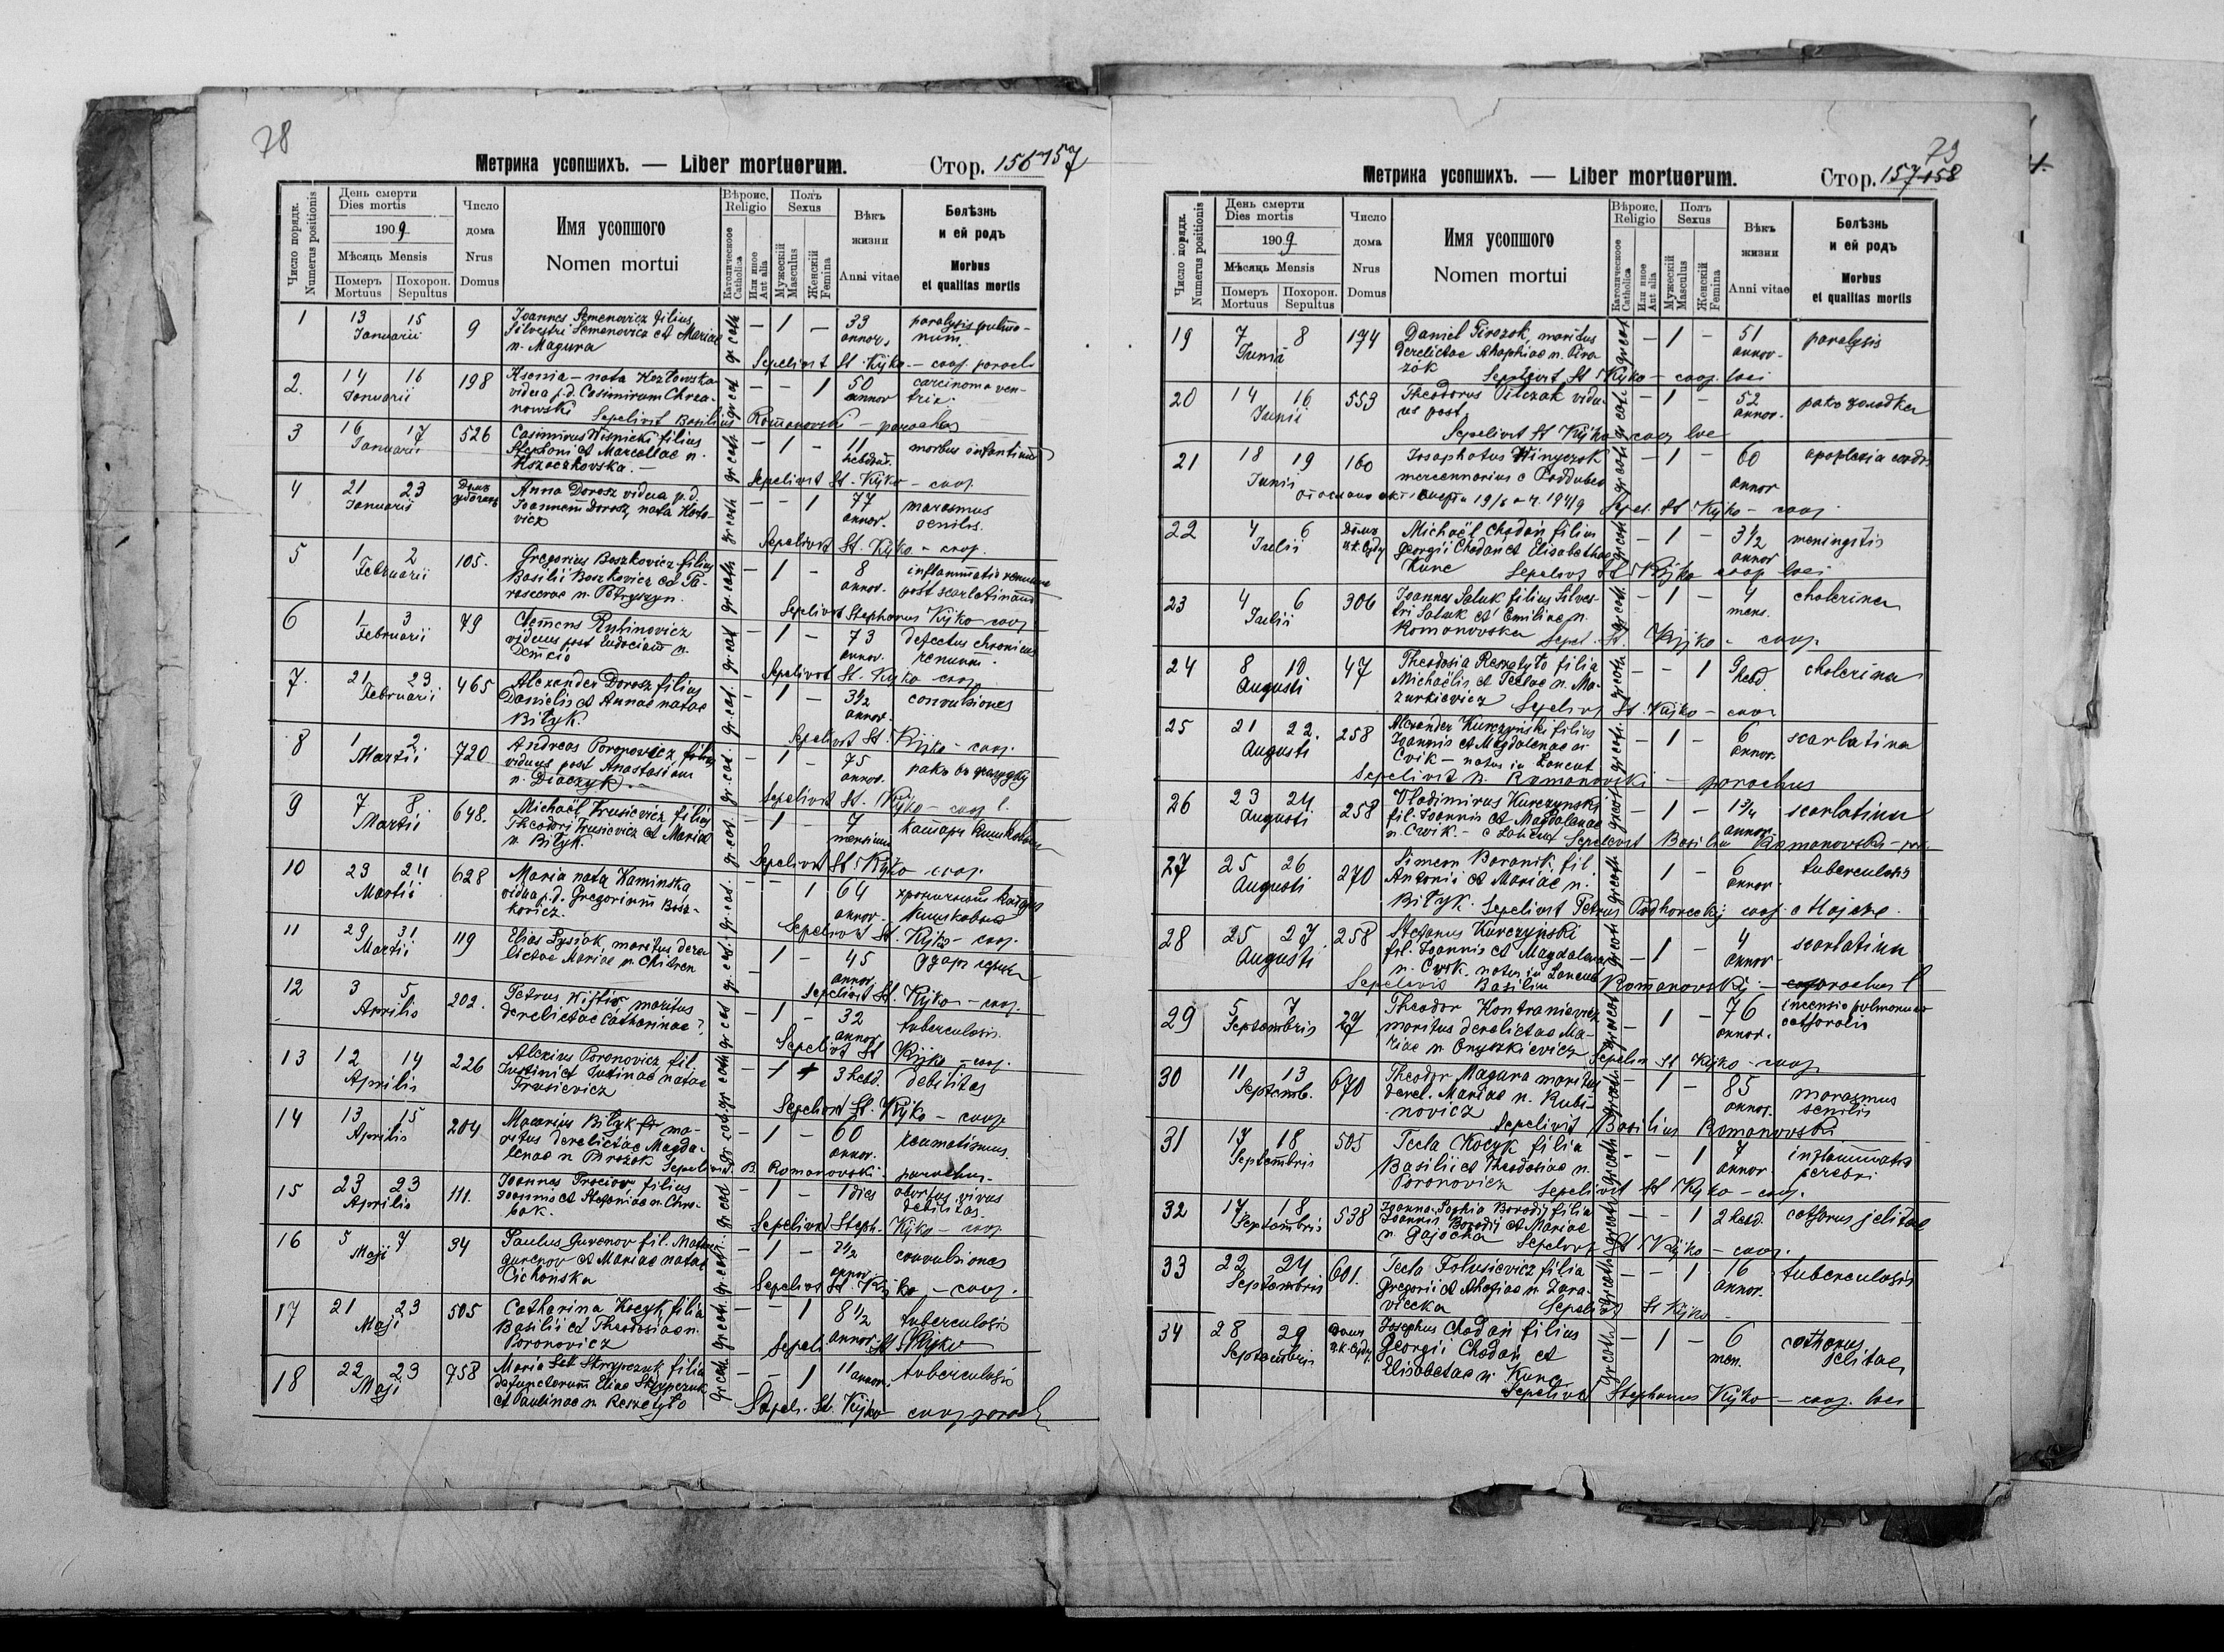 78
Метрика усопшихъ. — Liber mortuorum. Стор. 156 157
Число порядк. Numerus positionis
День смерти Dies mortis
1909
Мѣсяць Mensis
Померъ Mortuus Похорон. Sepultus
Число дома Nrus Domus
Имя усопшого Nomen mortui
Вѣроис. Religio
Католическое Catholica
Или иное Aut alia
Полъ Sexus
Мужескій Masculus
Женскій Femina
Вѣкъ жизни Anni vitae
Болѣзнь и ей родъ Morbus et qualitas mortis
1 13 15 Januarii 9 Joannes Semenovicz filius gr. cath. — 1 — 33 annor. paralysis pulmo-
Silvestri Semenovicz et Mariae num.
n. Magura
Sepelivit St. Kijko — coop. paroch
2. 14 16 Januarii 198 Ksenia — nata Kozłowska gr. cat — — 1 50 annor carcinoma ven-
vidua p. d. Casimirum Chrza- tris.
nowski Sepelivit Basilius Romanovski — parochus
3 16 17 Januarii 526 Casimirus Wisnicki filius gr. cath. — 1 — 11 hebdad. morbus infantium
Stephani et Marcellae n.
Kozaczkovska. —
Sepelivit St. Kijko — coop
4 21 23 Januarii Домъ убогихъ Anna Dorosz vidua p. d. gr. cath — — 1 77 annor. marasmus
Joannem Dorosz, nata Koto- senilis.
vicz
Sepelivit St. Kijko — coop.
5 1 2 Februarii 105. Gregorius Boszkovicz filius gr. cath — 1 — 8 annor. inflammatio renum
Basilii Boszkovicz et Pa- post scarlatinam
rascevae n. Petryszyn.
Sepelivit Stephanus Kijko coop
6 1 3 Februarii 79 Clemens Rubinovicz gr. cat — 1 — 73 annor. defectus chronicus
viduus post Eudociam n. renum.
Demcio
Sepelivit St. Kijko coop
7. 21 23 Februarii 465 Alexander Dorosz filius gr. cat. — 1 — 3½ annor. convulsiones
Danielis et Annae natae
Biłyk.
Sepelivit St. Kijko — coop.
8 1 2 Martii 720 Andreas Poronovicz gr. cat. — 1 — 75 annor. ракъ
viduus post Anastasiam
n. Diaczyk. —
Sepelivit St. Kijko — coop l.
9 7 8 Martii 648. Michael Trusievicz filius gr. cat. — 1 — 7 mensium Катарь кишковый
Theodori Trusievicz et Mariae
n. Biłyk.
Sepelivit St. Kijko coop.
10 23 24 Martii 628 Maria nata Kaminska gr. cat. — — 1 64 annor. хроничный катарь
vidua p. d. Gregorium Bosz- кишковый
kovicz.
Sepelivit St. Kijko — coop.
11 29 31 Martii 119 Elias Lysiak, maritus dere gr. cat. — 1 — 45 annor ударъ серця
lictae Mariae n. Chitren
Sepelivit St. Kijko — coop.
12 3 5 Aprilis 202. Petrus Wiftir maritus gr. cat — 1 — 32 annor tuberculosis.
derelictae Catharinae ?
Sepelivit St Kijko — coop.
13 12 14 Aprilis 226 Alexius Poronovicz fil. gr. cath — 1 3 hebd. debilitas
Justini et Justinae natae
Trusievicz
Sepelivit St. Kijko — coop
14 13 15 Aprilis 204 Macarius Biłyk ma- gr. cat. — 1 — 60 annor. reumatismus.
ritus derelictae Magda-
lenae n Pirozok Sepelivit B. Romanovski. parochus.
15 23 23 Aprilis 111. Joannes Prociow filius gr. cat — 1 — 1 dies abortus vivus
Joannis et Stefaniae n. Chro- debilitas.
bak.
Sepelivit Steph. Kijko — coop
16 5 7 Maji 34 Paulus Gurenov fil. gr. cath. — 1 — 2½ annor convulsiones
Gurenov et Mariae natae
Cichonska
Sepelivit St. Kijko — coop.
17 21 23 Maji 505 Catharina Kocyk filia gr. cath. — — 1 8½ annor tuberculosis
Basilii et Theodosiae n.
Poronovicz
Sepeli St Kijko
18 22 23 Maji 758 Maria Skrypczuk filia gr. cath — — 1 11 annor. tuberculosis
defunctorum Eliae Skrypczuk
et Paulinae n Reszetyło
Sepeli. St. Kijko — coop paroch
79
Метрика усопшихъ. — Liber mortuorum. Стор. 157 158
Число порядк. Numerus positionis
День смерти Dies mortis
1909
Мѣсяць Mensis
Померъ Mortuus Похорон. Sepultus
Число дома Nrus Domus
Имя усопшого Nomen mortui
Вѣроис. Religio
Католическое Catholica
Или иное Aut alia
Полъ Sexus
Мужескій Masculus
Женскій Femina
Вѣкъ жизни Anni vitae
Болѣзнь и ей родъ Morbus et qualitas mortis
19 7 8 Junii 174 Daniel Pirozok, maritus gr. cat — 1 — 51 annor. paralysis
derelictae Ahaphiae n. Piro
zok Sepelivit St Kijko — coop. loci
20 14 16 Junii 553 Theodorus Pilczak vidu- gr. cat. — 1 — 52 annor. ракъ желодка
us post
Sepelivit St Kijko coop loc
21 18 19 Junii 160 Josaphatus Winyczok gr. cath — 1 — 60 annor apoplexia cordis
mercennarius e Poddubec
19/6 1949 Sepel. St Kijko — coop.
22 4 6 Julii Домъ Michaël Chodań filius gr. cath — 1 — 3½ annor meningitis
Georgii Chodań et Elisabethae
Kunc Sepelivit St Kijko coop loci
23 4 6 Julii 306 Joannes Saluk filius Silves- gr. cat. — 1 — 4 mens. cholerina
tri Saluk et Emiliae n.
Romanovska Sepel. St. Kijko — coop.
24 8 10 Augusti 47 Theodosia Reszetyło filia gr. cath. — — 1 9 hebd. cholerina
Michaëlis et Teclae n. Ma-
zurkievicz Sepelivit St. Kijko — coop
25 21 22. Augusti 258 Alexander Kurczynski filius gr. cath. — 1 — 6 annor. scarlatina
Joannis et Magdalenae n.
Cvik — natus in Lancut
Sepelivit B. Romanovski — parochus
26 23 24 Augusti 258 Vladimirus Kurczynski gr. cat. — 1 — 1¾ annor. scarlatina
fil. Joannis et Magdalenae
n. Cwik — e Lancut Sepelivit Basilius Romanovski — par.
27 25 26 Augusti 270 Simeon Baranik fil. gr. cath 1 — 6 annor. tuberculosis
Antonii et Mariae n.
Biłyk. Sepelivit Petrus Podhorecki coop.
28 25 27. Augusti 258 Stefanus Kurczynski gr. cat. — 1 — 4 annor scarlatina
fil. Joannis et Magdalenae
n. Cwik. natus in Lancut
Sepelivit Basilius Romanovskij — parochus l
29 5 7 Septembris 27 Theodor Kontranievicz gr. cat — 1 — 76 annor. pulmonum
maritus derelictae Ma- catharalis
riae n. Onyszkievicz Sepeliv St Kijko — coop
30 11 13 Septemb. 670 Theodor Magura maritus gr. cath — 1 — 85 annor. marasmus
derel. Mariae n. Rubi- senilis
novicz
Sepelivit Basilius Romanovski
31 17 18 Septembris 505 Tecla Kocyk filia gr. cath — — 1 7 annor inflammatio
Basilii et Theodosiae n. cerebri
Poronovicz Sepelivit St Kijko — coop.
32 17 18 Septembris 538 Joanna Sophia Borodij filia gr. cath — — 1 2 hebd. catharus jelitae
Joannis Borodij et Mariae
n. Gajocka Sepelivit St Kijko — coop.
33 22 24 Septembris 601. Tecla Folusievicz filia gr. cath — — 1 16 annor. tuberculosis
Gregorii et Ahafiae n. Zara-
viecka Sepelivit St Kijko —
34 28 29 Septembris Домъ Josephus Chodań filius gr. cath — 1 — 6 men. catharus
Georgii Chodań et jelitae
Elisabetae n. Kunc
Sepelivit Stephanus Kijko — coop. loci